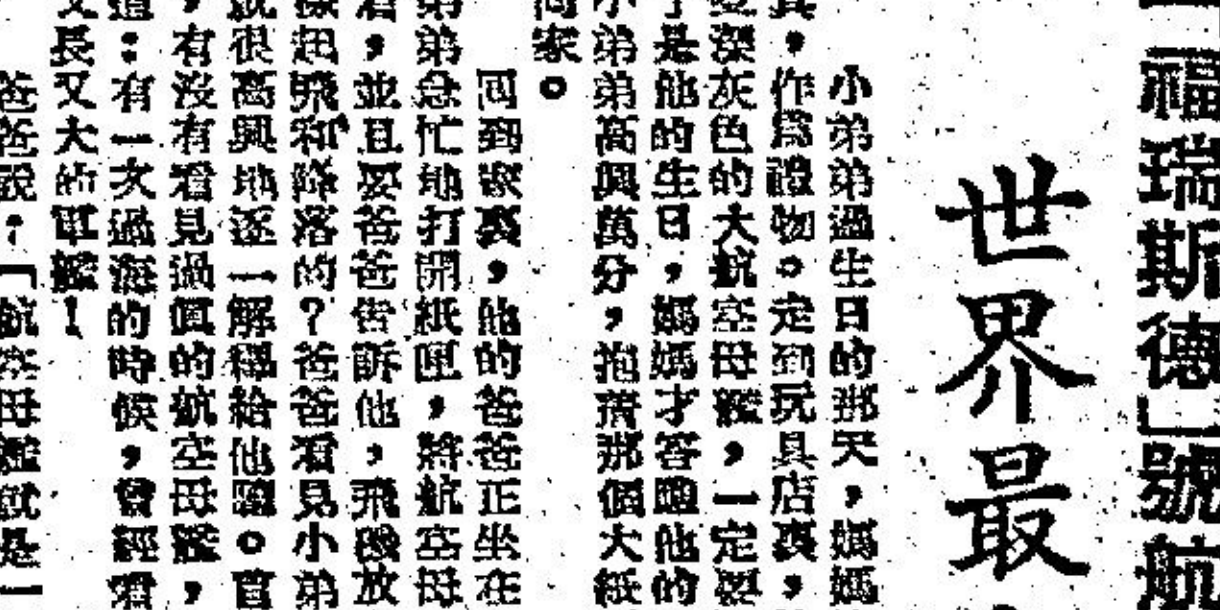 「福瑞斯德」號航
世界最
小弟弟過生日的那天，媽媽
具，作爲禮物。定到玩具店裏，
深灰色的大航空母艦，一定要
是他的生日，媽媽才答應他的
小弟弟高興萬分，抱着那個大紙
回家。
回到家裏，他的爸爸正坐在
弟弟急忙地打開紙匣，將航空母
着，並且要爸爸告訴他，飛機放
樣起飛和降落的？爸爸看見小弟
就很高興地逐一解釋給他聽。
，有沒有看見過真的航空母艦，
道：有一次過海的時候，曾經看
又長又大的軍艦！
爸爸說：「航空母艦就是一